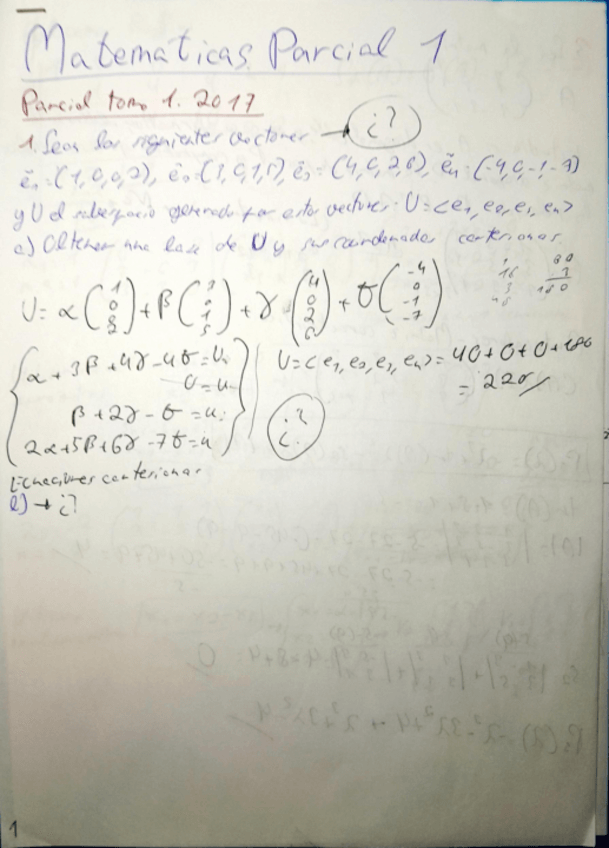 Matematicas Parcial 1
Parcial tomo 1. 2017
1. Sean los siguientes vectores → ¿?
ē₁=(1,0,0,2), ē₂=(3,0,1,5), ē₃=(4,0,2,6), ē₄=(-4,0,-1,-7)
y U el subespacio generado por estos vectores. U=<e₁, e₂, e₃, e₄>
a) Obtener una base de U y sus coordenadas cartesianas.
U= α (1 0 0 2) + β (3 0 1 5) + γ (4 0 2 6) + σ (-4 0 -1 -7)
α+3β+4γ-4σ=U
0=u
β+2γ-σ=u
2α+5β+6γ-7σ=u
U=<e₁,e₂,e₃,e₄>=40+0+0+180
=220
¿?
Ecuaciones cartesianas
b) → ¿?
1